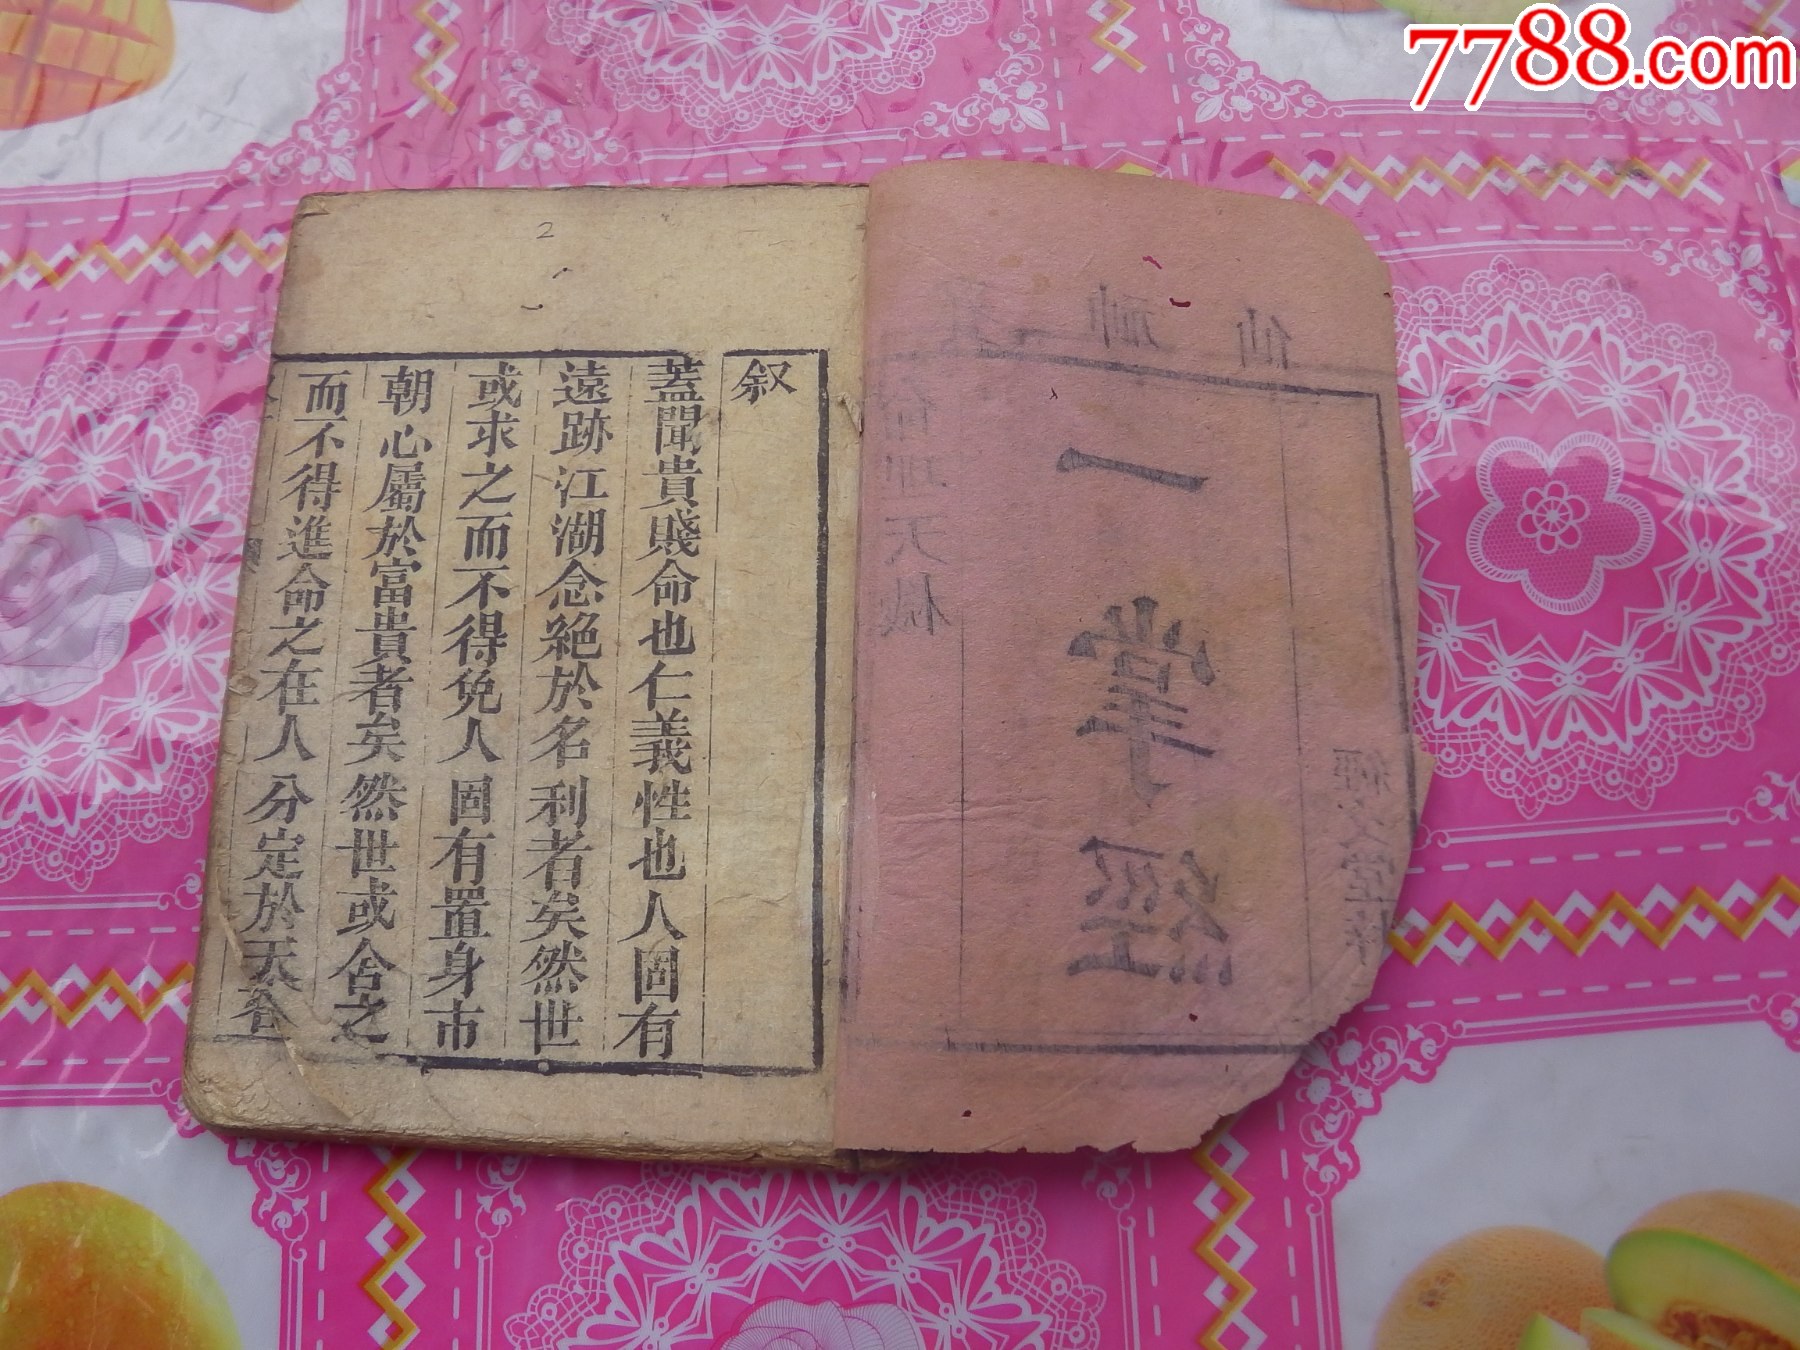 7788.com
仙神
一掌經
命理天機
經文堂梓
叙
蓋聞貴賤命也仁義性也人固有
遠跡江湖念絕於名利者矣然世
或求之而不得免人固有置身市
朝心屬於富貴者矣然世或舍之
而不得進命之在人分定於天者
2